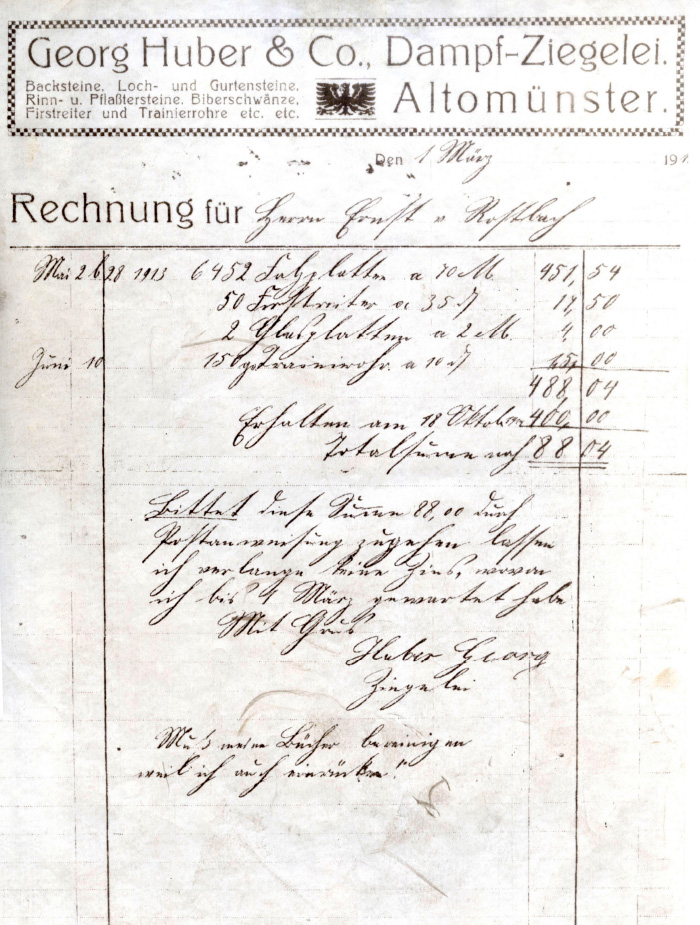 Georg Huber & Co., Dampf-Ziegelei.
Backsteine, Loch- und Gurtensteine,
Rinn- u. Pflaßtersteine, Biberschwänze,
Firstreiter und Trainierrohre etc. etc.
Altomünster.
Den 1 März 191
Rechnung für Herrn Ernst v Rostbach
Mai 26 28 1913 6452 Falzplatten a 70 M 451,54
50 Firstreiter a 35 17,50
2 Glasplatten a 2 M 4,00
Juni 10 150 Trainirrohr a 10 15,00
488,04
Erhalten am 18 Oktober 400,00
Totalsumme noch 88 04
Bittet diese Summe 88,00 durch
Postanweisung zugehen lassen
ich verlange keine Zins, wovon
ich bis 4 März gewartet habe
Mit Gruß
Huber Georg
Ziegelei
Muß meine Bücher bereinigen
weil ich auch einrücke!